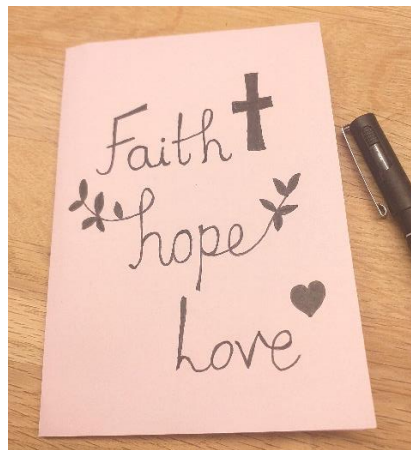 Faith
hope
Love